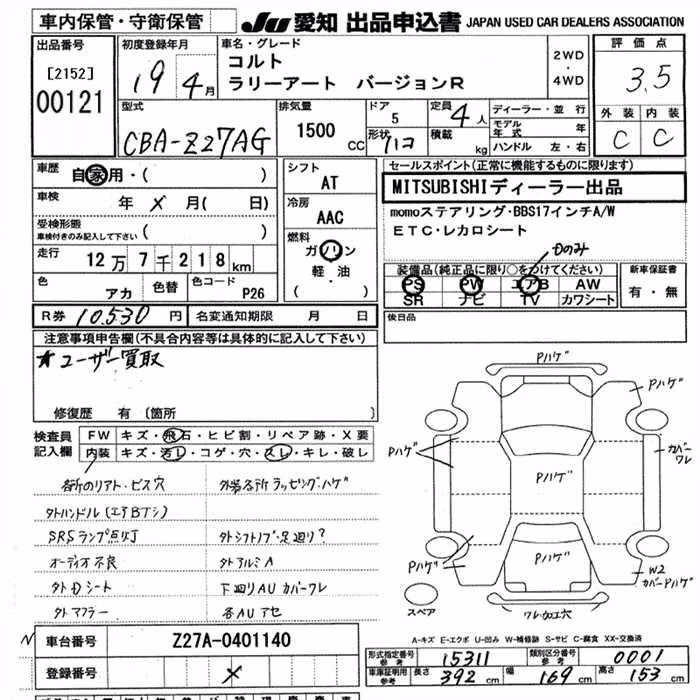 車内保管・守衛保管 JU 愛知 出品申込書 JAPAN USED CAR DEALERS ASSOCIATION
出品番号 初度登録年月 車名・グレード 評価点
[2152] 19年4月 コルト 2WD・4WD 3.5
00121 ラリーアート バージョンR 外装 内装
型式 排気量 ドア 定員 ディーラー・並行 C C
CBA-Z27AG 1500cc 5 4人 モデル年式 年
形状 ハコ 積載 kg ハンドル 左・右
車歴 自家用・( ) シフト セールスポイント(正常に機能するものに限ります)
AT MITSUBISHIディーラー出品
車検 年 メ 月( 日) 冷房 momoステアリング・BBS17インチA/W
AAC ETC・レカロシート
受検形態 燃料 Dのみ
車検付きのみ記入して下さい( ) ガソリン 装備品(純正品に限り○をつけてください) 新車保証書
走行 12万7千218km 軽・油 PS PW エアB AW 有・無
色 アカ 色替 色コード P26 ( ) SR ナビ TV カワシート
R券 10,530円 名変通知期限 月 日 後日品
注意事項申告欄(不具合内容等は具体的に記入して下さい)
★ユーザー買取
修復歴 有 〔箇所
検査員 FW キズ・飛石・ヒビ割・リペア跡・X要
記入欄 内装 キズ・汚レ・コゲ・穴・スレ・キレ・破レ
各所のリアト・ビス穴 外装各所ラッピング・ハゲ
外ハンドル(エアBナシ)
SRSランプ点灯 外シフトノブ・足廻り?
オーディオ不良 外アルミA
外Dシート 下廻りAU カバーワレ
外マフラー 各AUアセ
Pハゲ
Pハゲ
Pハゲ Pハゲ カバーワレ
Pハゲ Pハゲ W2
カバーPハゲ
スペア ワレ・加工穴
A-キズ E-エクボ U-凹み W-補修跡 S-サビ C-腐食 XX-交換済
車台番号 Z27A-0401140
登録番号 メ
形式指定番号 参考 15311 類別区分番号 参考 0001
車庫証明用 参考 長さ 392cm 幅 169cm 高さ 153cm